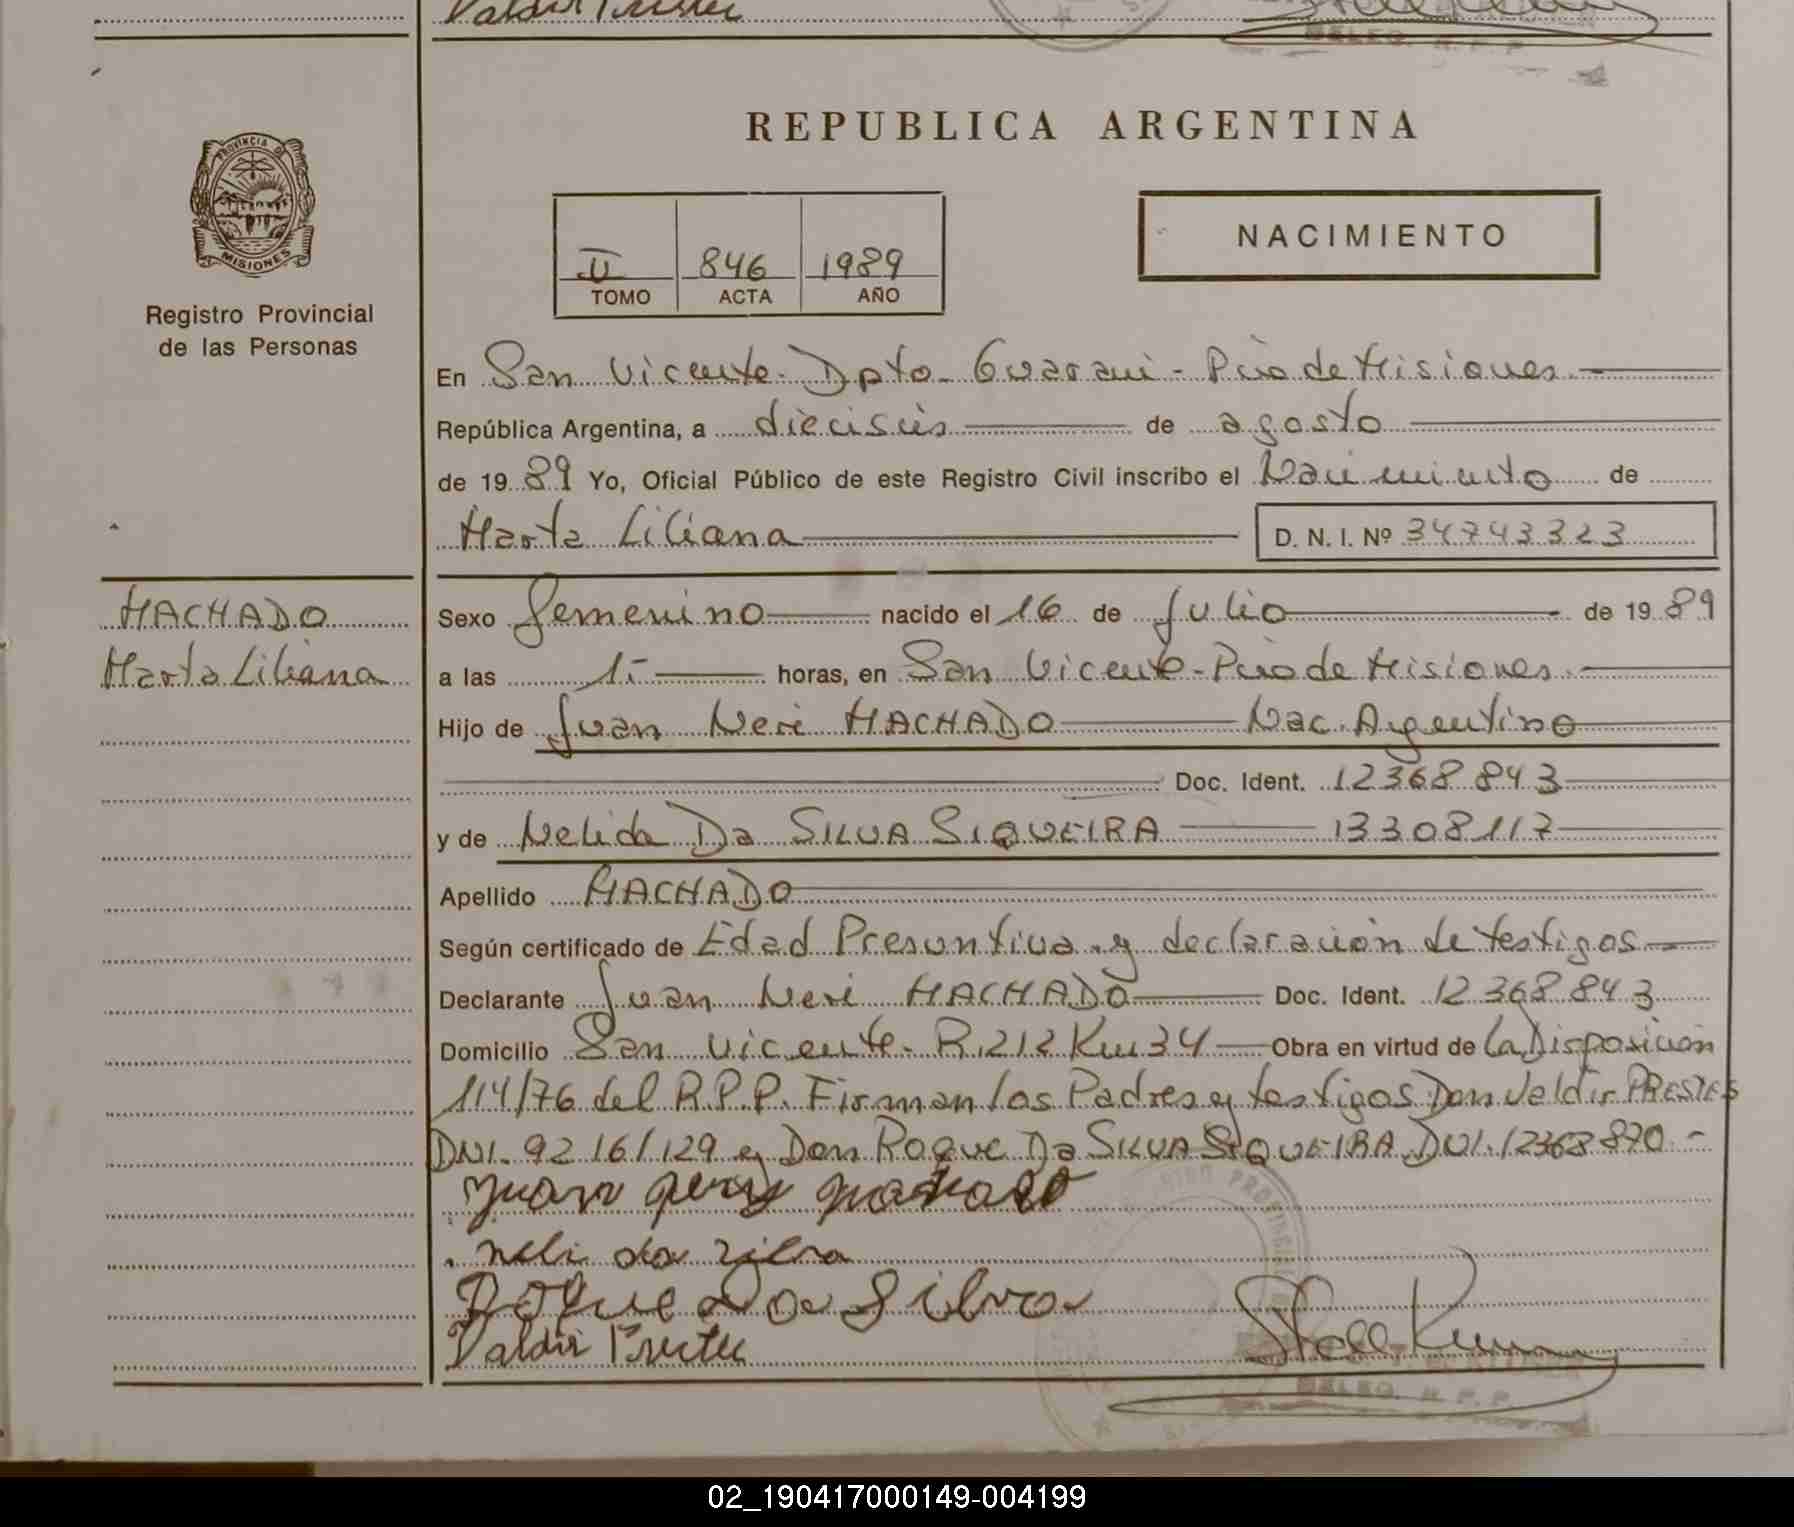 Valdir Prestes
DELEG. R.P.P.
REPUBLICA ARGENTINA
PROVINCIA DE
MISIONES
Registro Provincial
de las Personas
II 846 1989
TOMO ACTA AÑO
NACIMIENTO
En San Vicente - Dpto - Guarani - Pcia de Misiones
República Argentina, a dieciseis de agosto
de 1989 Yo, Oficial Público de este Registro Civil inscribo el Nacimiento de
Marta Liliana D. N. I. Nº 34743323
MACHADO
Marta Liliana
Sexo femenino nacido el 16 de Julio de 1989
a las 1.- horas, en San Vicente - Pcia de Misiones
Hijo de Juan Neri MACHADO Nac. Argentino
Doc. Ident. 12368843
y de Nelida Da SILVA SIQUEIRA 13308117
Apellido MACHADO
Según certificado de Edad Presuntiva y declaración de testigos
Declarante Juan Neri MACHADO Doc. Ident. 12368843
Domicilio San Vicente - R.212 Km 34 Obra en virtud de La Disposición
114/76 del R.P.P. Firman los Padres y testigos Don Valdir PRESTES
DNI. 92161129 y Don Roque Da SILVA SIQUEIRA DNI. 12368870.-
neli da silva
Roque Da Silva
Valdir Prestes
DELEG. R.P.P.
02_190417000149-004199